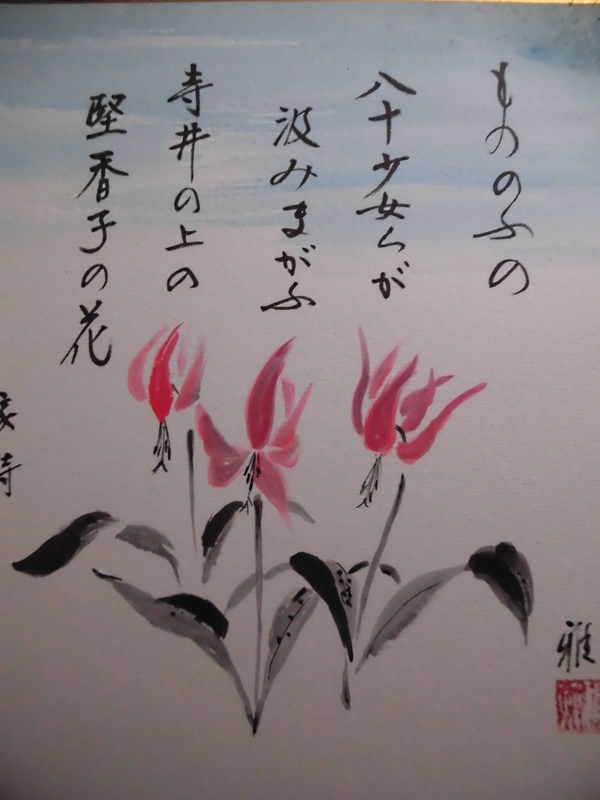 もののふの
八十少女らが
汲みまがふ
寺井の上の
堅香子の花
家持
雅